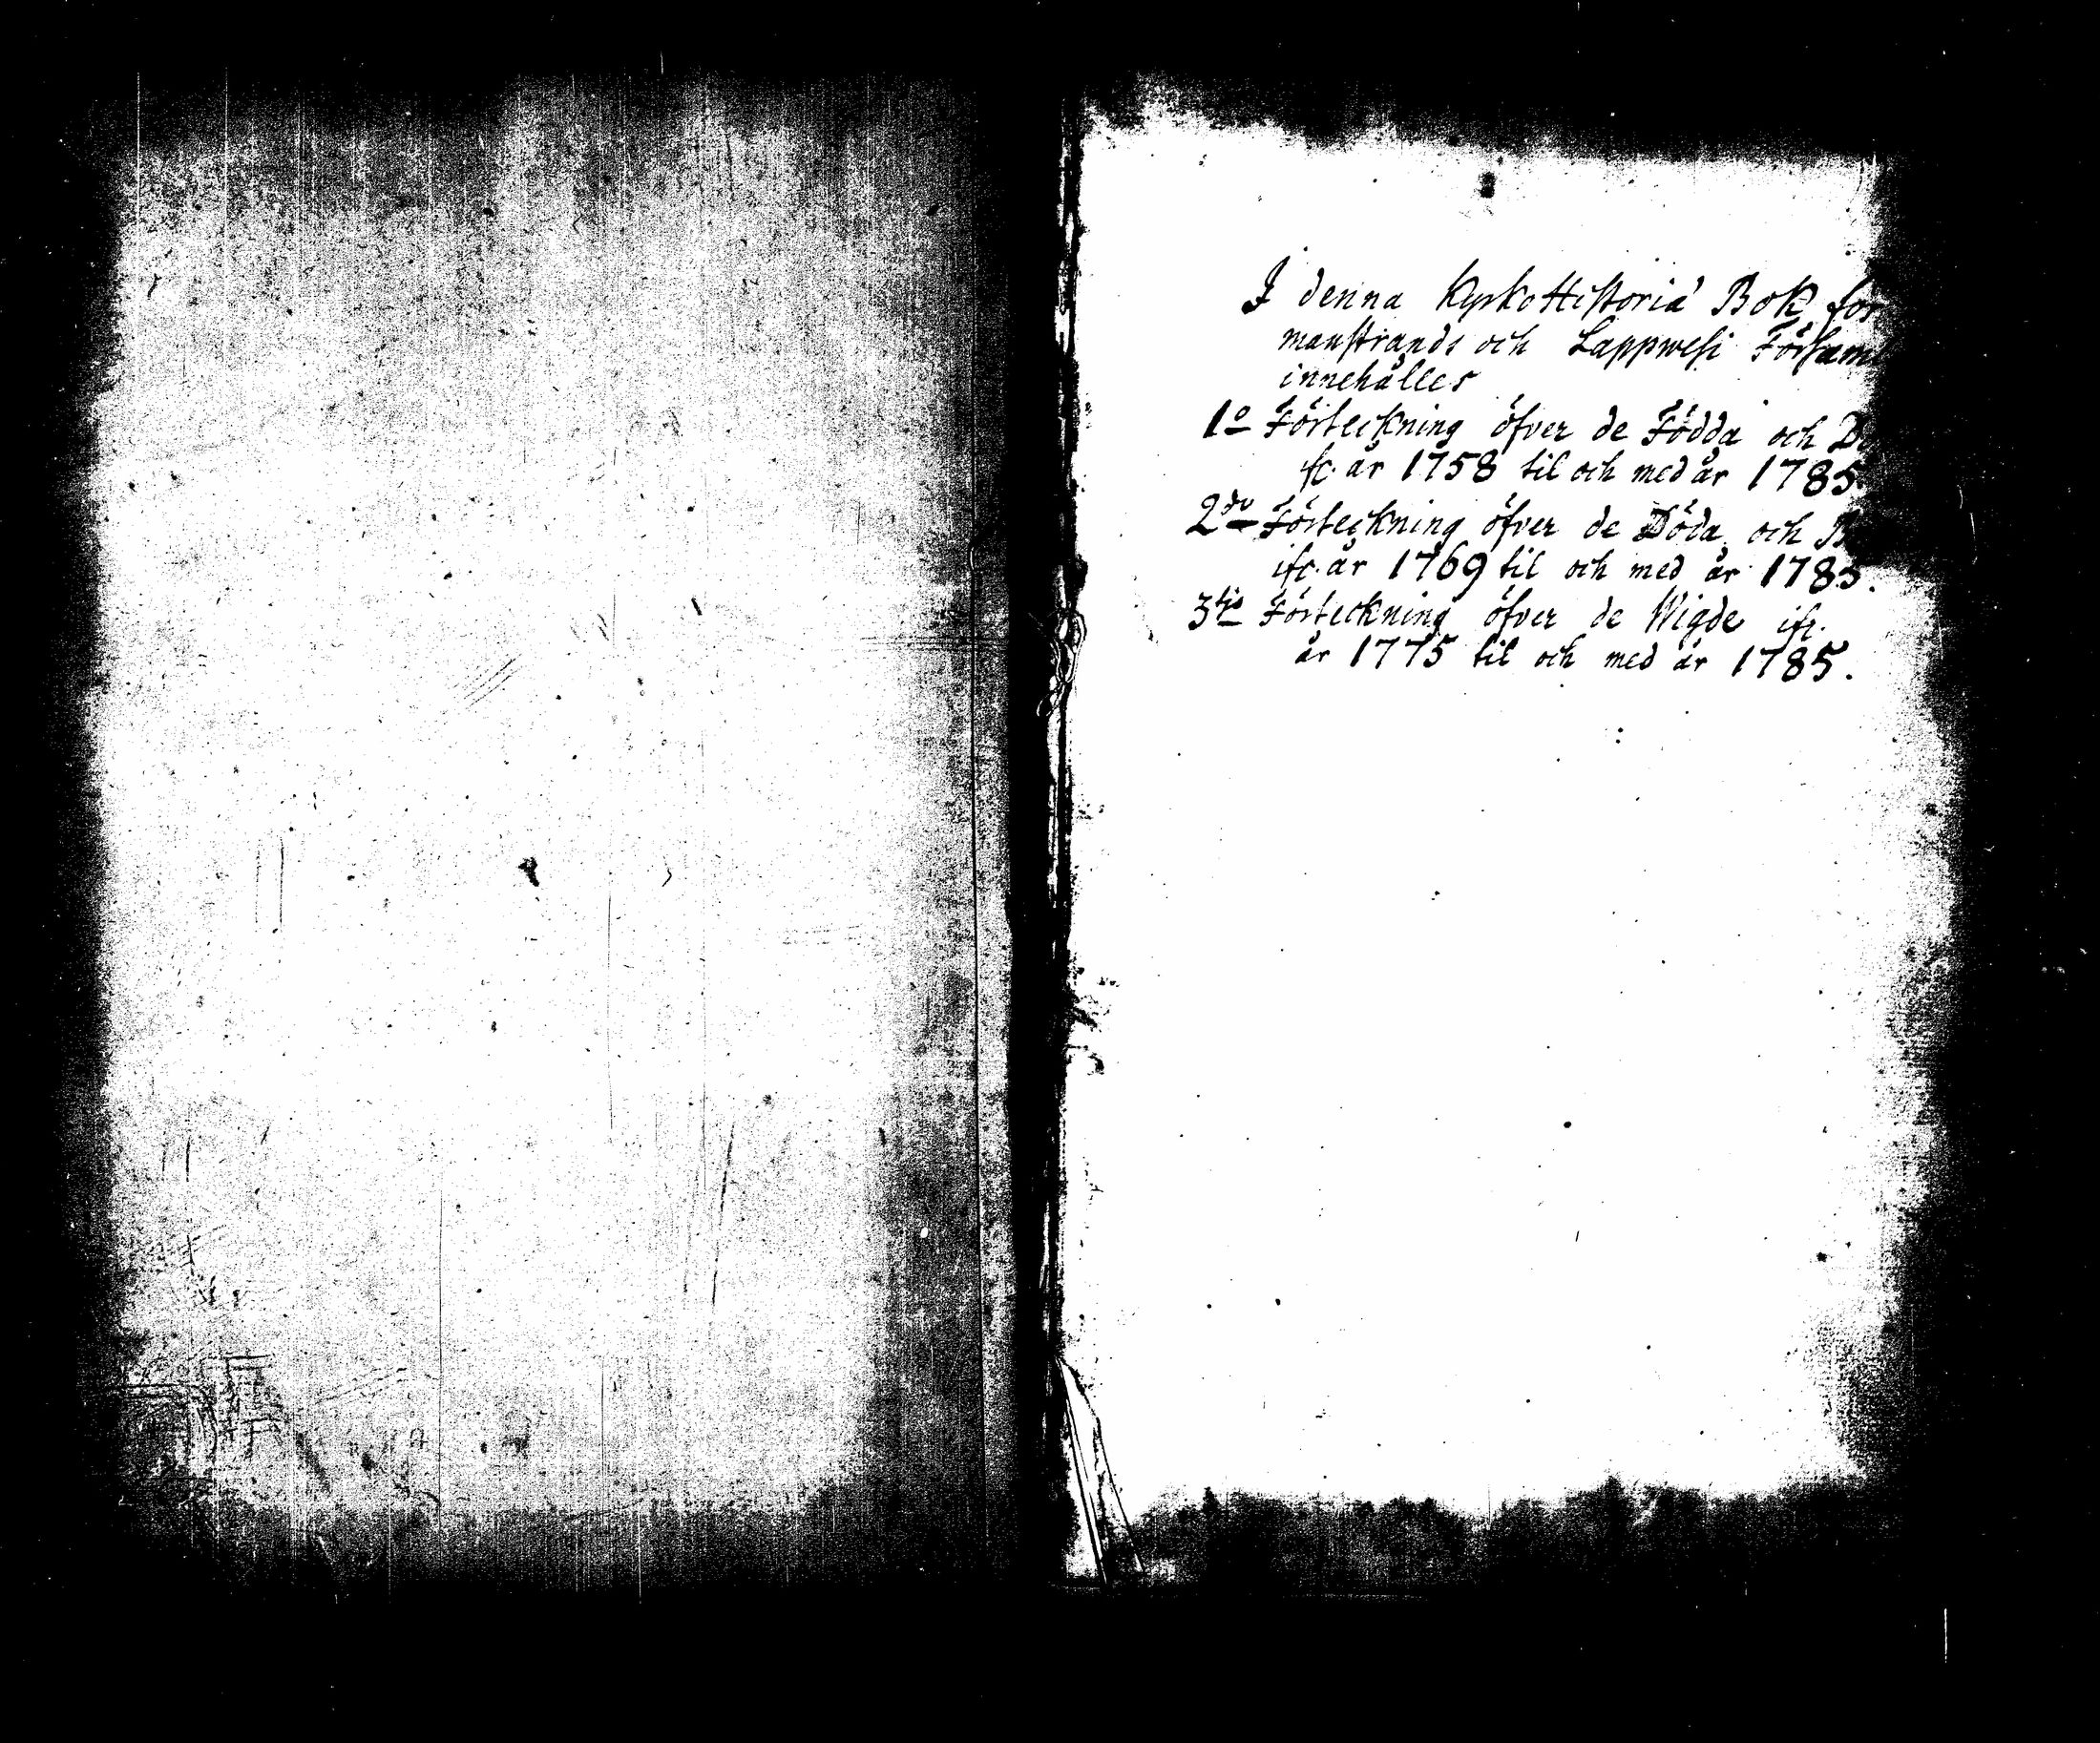 I denna KyrkoHistoria Bok for
manstrands och Lappwesi Försam
innehålles
1o Förteckning öfver de Födda och D
fr. år 1758 til och med år 1785.
2do Förteckning öfver de Döda och B
ifr. år 1769 til och med år 1785.
3tio Förteckning öfver de Wigde ifr.
år 1775 til och med år 1785.